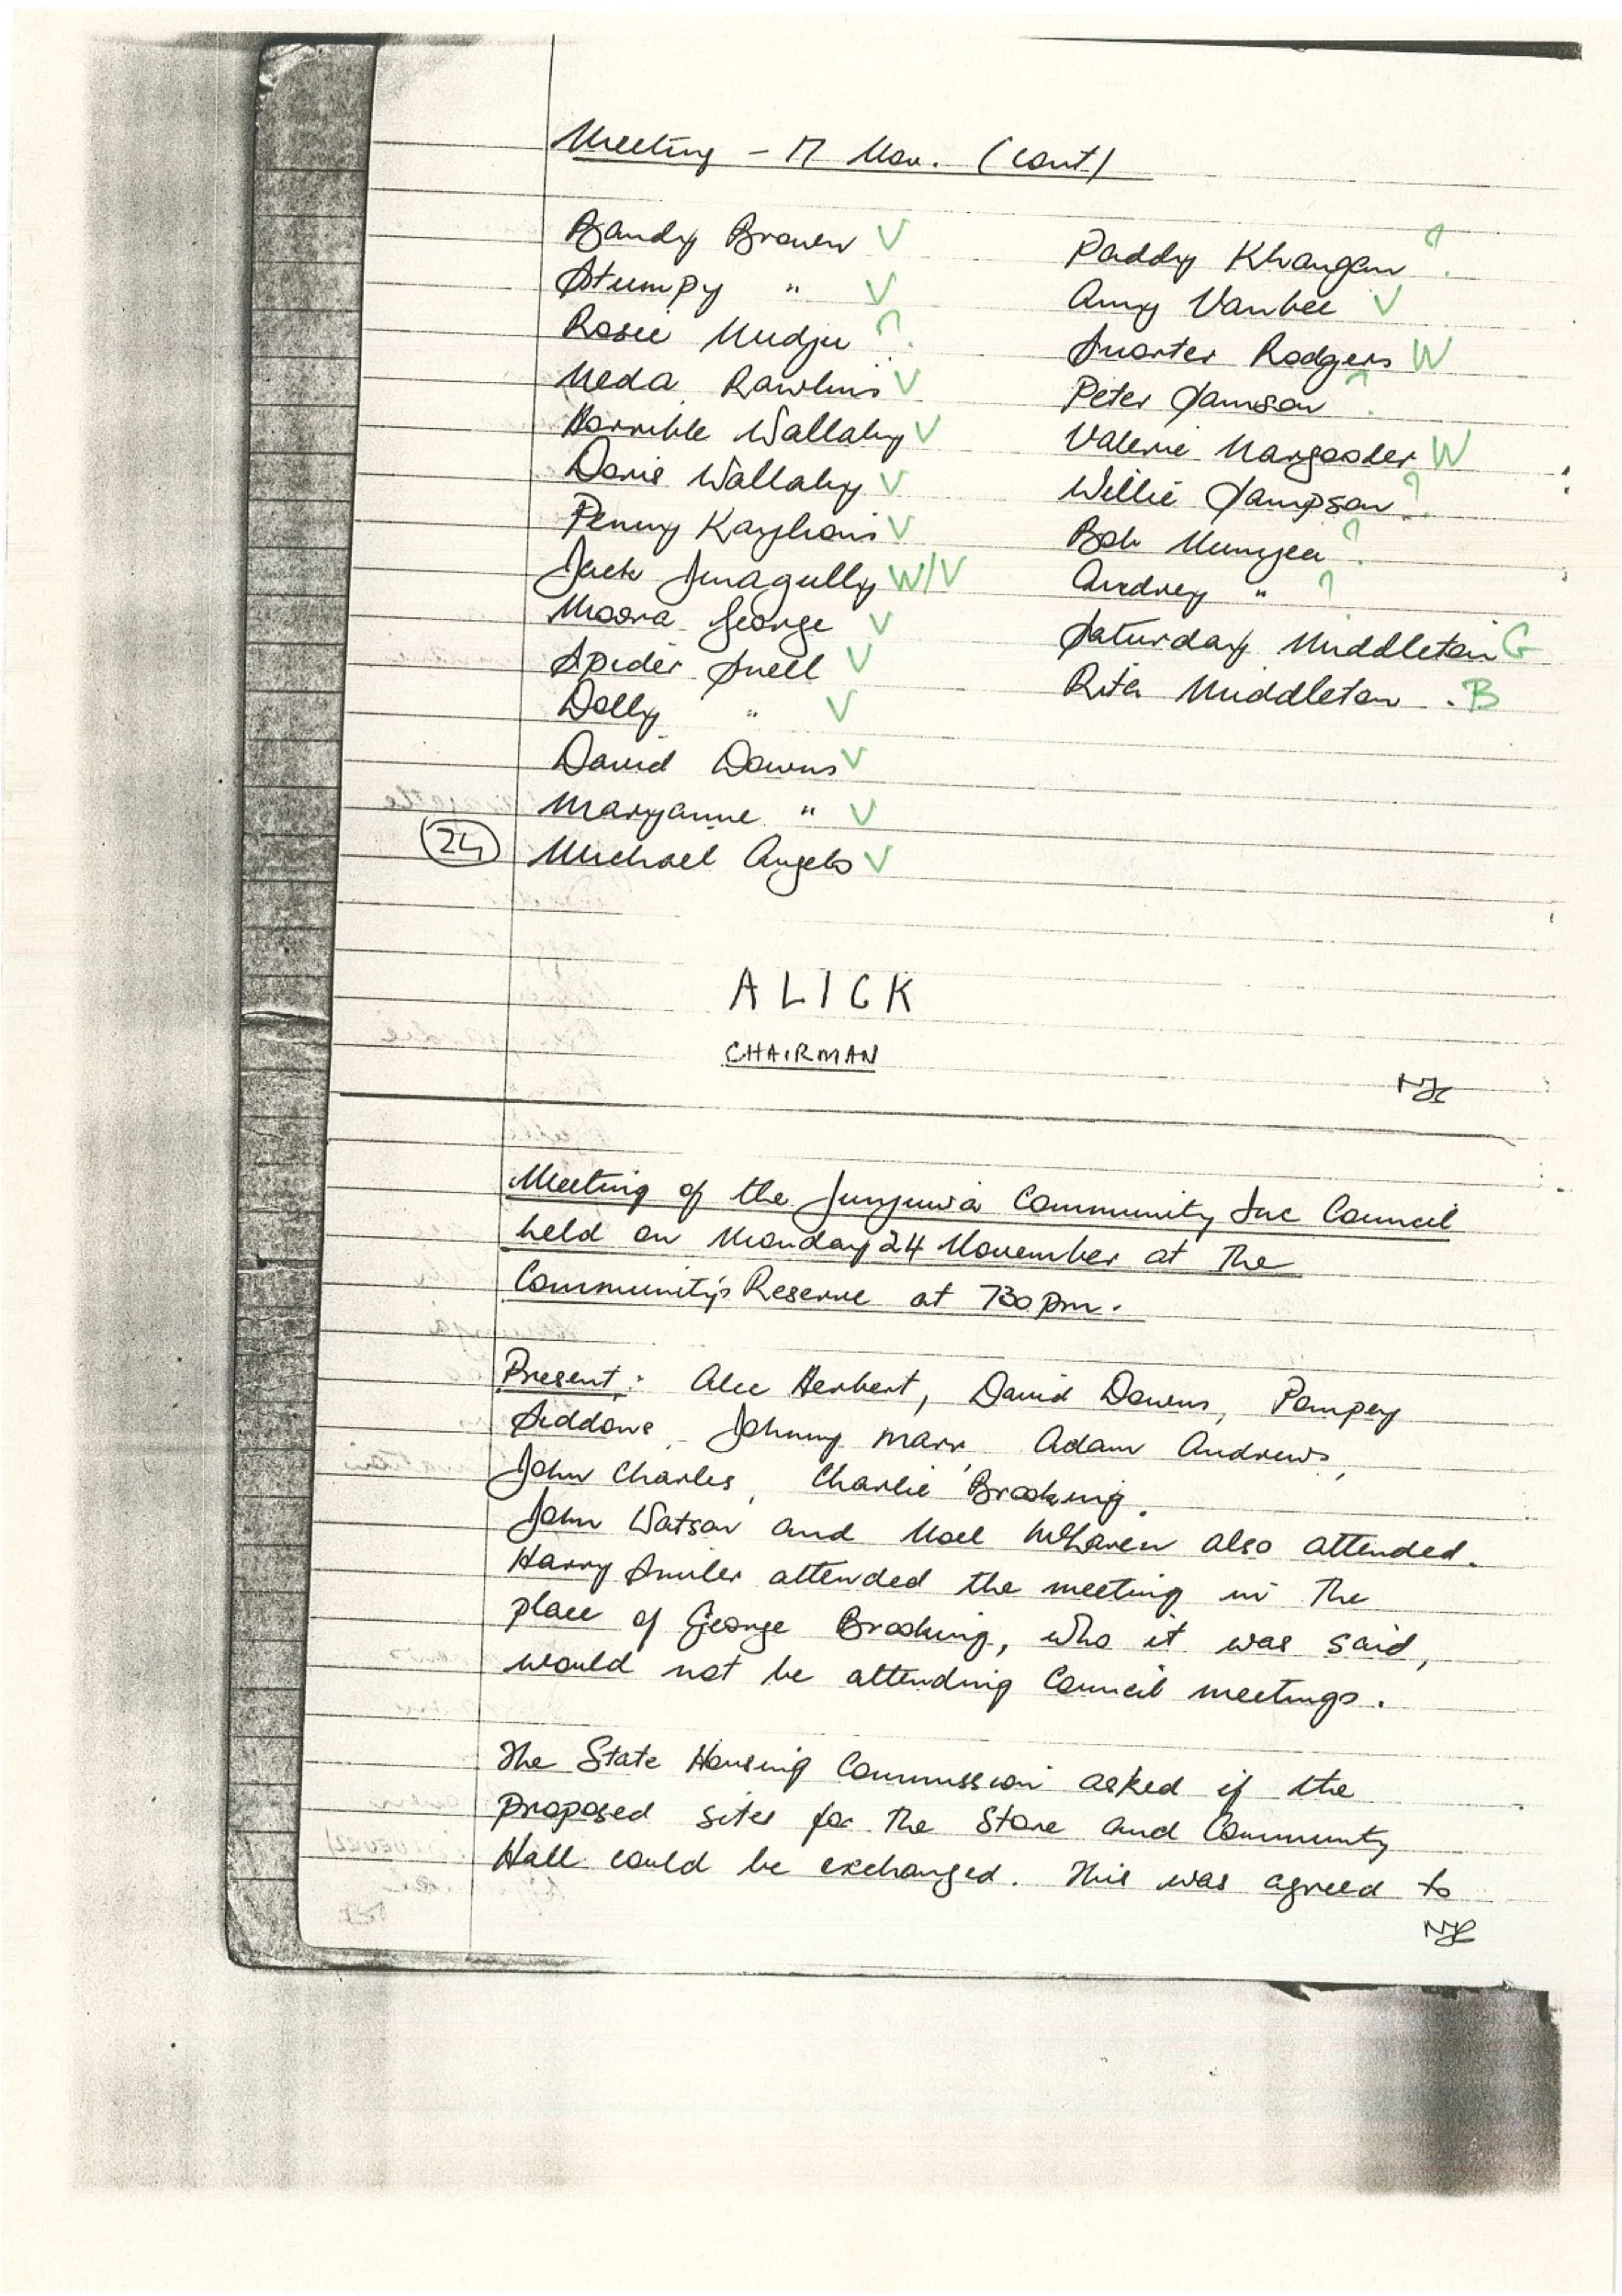 Meeting - 17 Nov. (cont)
Bandy Brown V
Stumpy " V
Rosie Mudju ?
Neda Rawlins V
Horrible Wallaby V
Doris Wallaby V
Penny V
Jack W/V
Moora George V
Spider Snell V
Dolly " V
David Downs V
Maryanne " V
24 Michael Angelo V
Paddy Khangan ?
Amy Vanbee V
Snorter Rodgers W
Peter Samson ?
Valerie W
Willie Sampson ?
Bob ?
Audrey " ?
Saturday Middleton G
Rita Middleton . B
ALICK
CHAIRMAN
Meeting of the Junjuwa Community Inc Council
held on Monday 24 November at The
Community's Reserve at 730 pm.
Present: Alec Herbert, David Downs, Pompey
Siddons, Johnny Marr, Adam Andrews,
John Charles, Charlie Brooking.
John Watson and Noel McLaren also attended.
Harry Smiler attended the meeting in the
place of George Brooking, who it was said,
would not be attending Council meetings.
The State Housing Commission asked if the
proposed sites for the Store and Community
Hall could be exchanged. This was agreed to